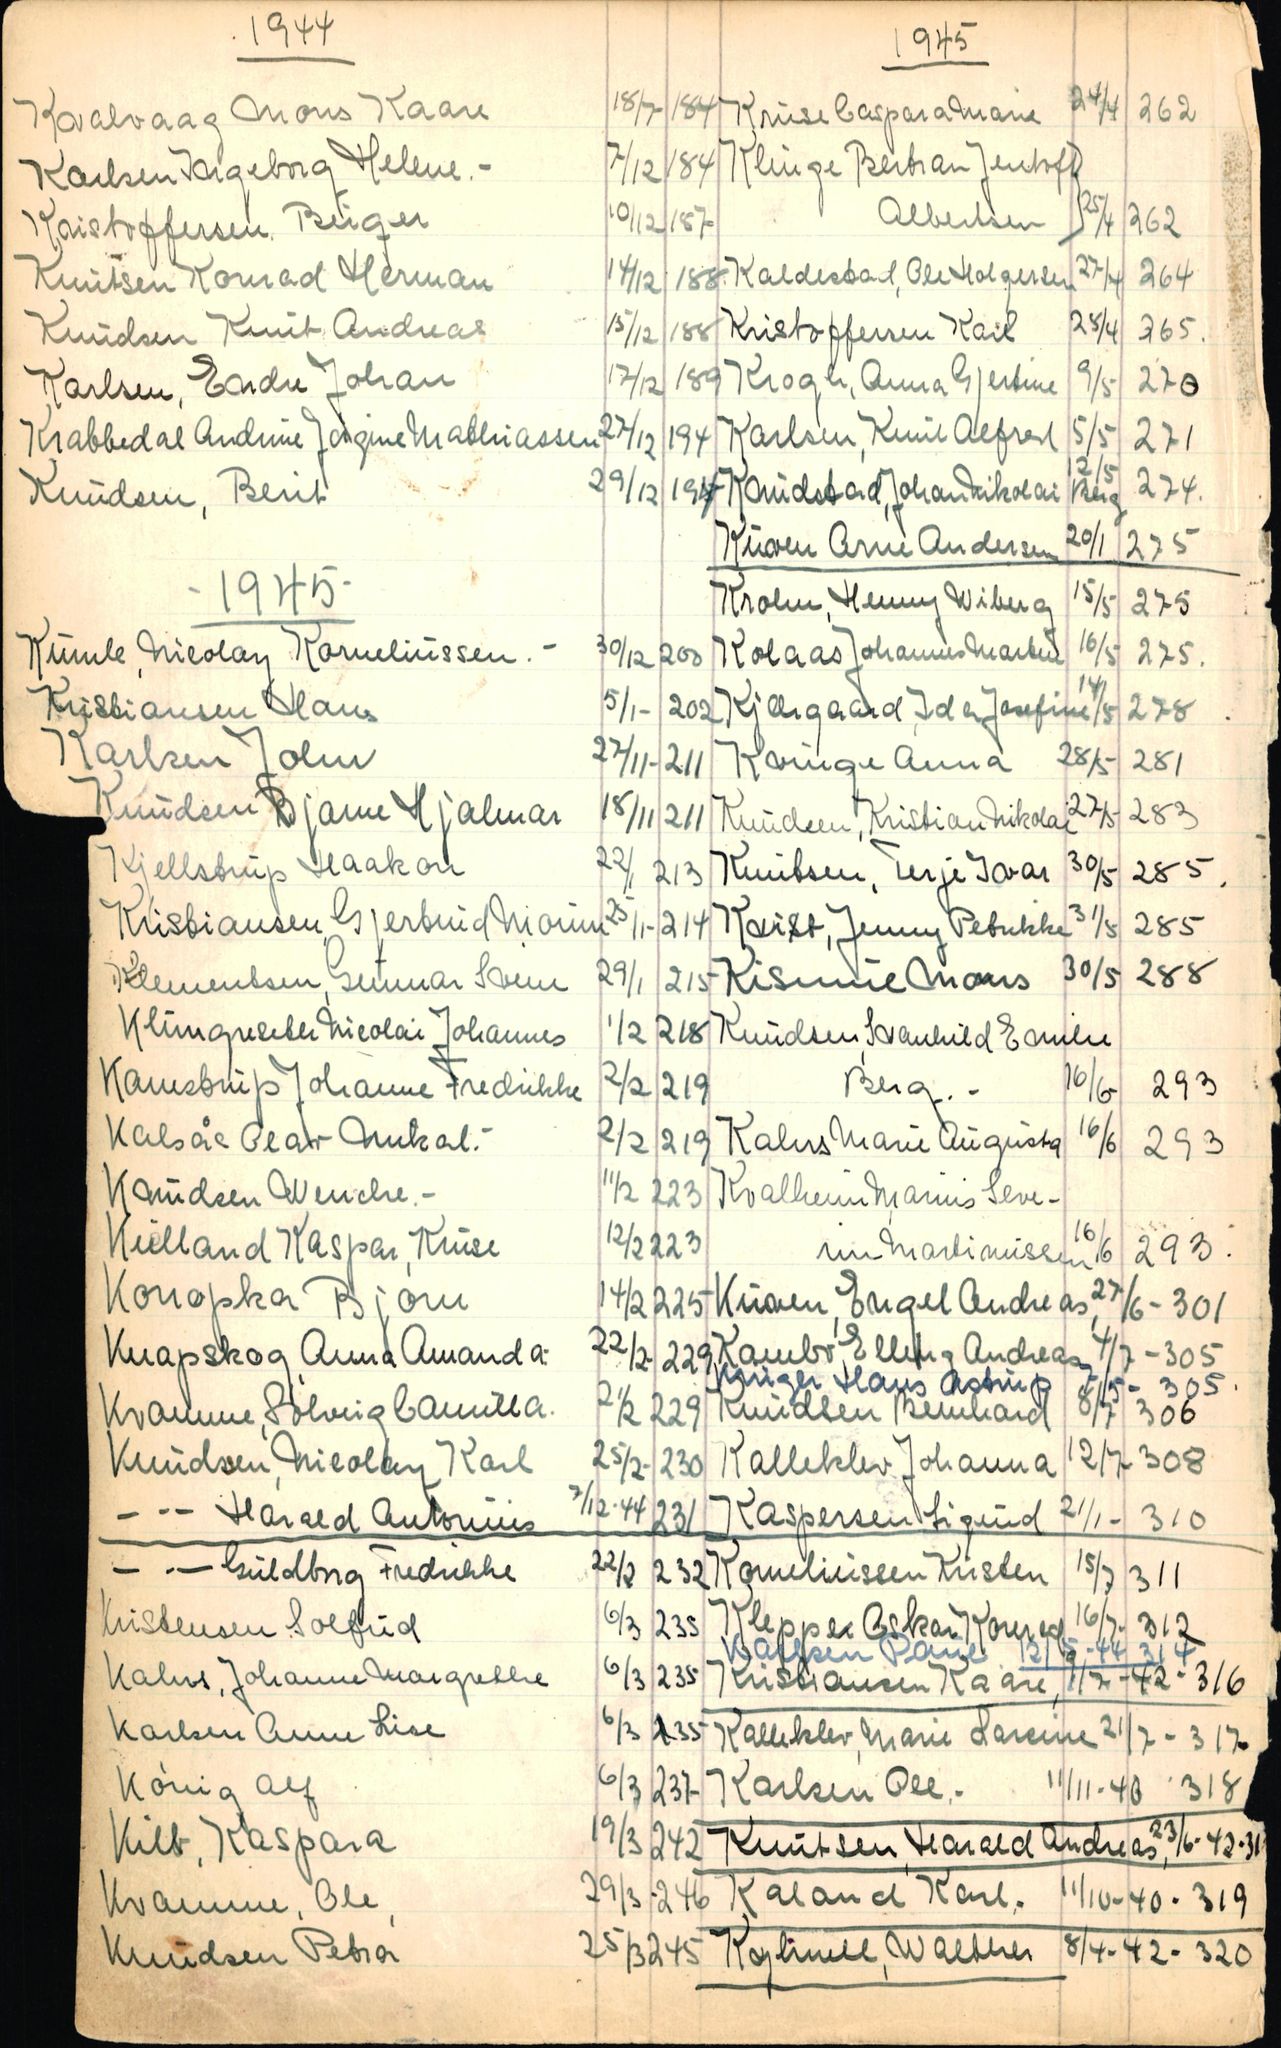 1944
Kvalvaag Mons Kaare 18/7 184
Karlsen Ingeborg Helene.- 7/12 184
Kristoffersen Birger 10/12 187
Knutsen Konrad Herman 14/12 188
Knudsen Knut Andreas 15/12 188
Karlsen, Endre Johan 17/12 189
Krabbedal Andrine Jørgine Mathiassen 27/12 194
Knudsen, Berit 29/12 195
-1945-
Kumle, Nicolay Korneliussen.- 30/12 200
Kristiansen Hans 5/1- 202
Karlsen John 27/11- 211
Knudsen Bjarne Hjalmar 18/11 211
Kjellstrup Haakon 22/1 213
Kristiansen, Gjertrud 25/1- 214
Klementsen, Gunnar Svein 29/1 215
Klungreseter Nicolai Johannes 1/2 218
Kamstrup Johanne Fredrikke 2/2 219
Kalsås Olav Mikal.- 2/2 219
Knudsen Wenche.- 11/2 223
Kielland Kaspar, Kruse 12/2 223
Konopka Bjørn 14/2 225
Knapskog, Anna Amanda 22/2- 229
Kvamme, Solveig Camilla. 21/2 229
Knudsen, Nicolay Karl 25/2- 230
- -- Harald Antonius 7/12-44 231
- -- Guldborg Fredrikke 22/2 232
Kristensen Solfrid 6/3 235
Kahrs, Johanne Margrethe 6/3 235
Karlsen Anne Lise 6/3 235
König Alf 6/3 237
Kilt, Kaspara 19/3 242
Kvamme, Ole, 29/3-246
Knudsen Petra 25/3 245
1945
Kruse Caspara Marie 24/4 262
Klinge Bertran Jentoft
Albertsen 25/4 262
Kaldestad, Ole Holgersen 27/4 264
Kristoffersen Karl 28/4 265.
Krogh, Anna Gjertine 9/5 270
Karlsen, Knut Alfred 5/5 271
Knudstad, Johan Nikolai Berg 12/5 274.
Kuven Arne Andersen 20/1 275
Krohn, Henny Wiberg 15/5 275
Kolaas Johannes Martin 16/5 275.
Kjærgaard, Ida Josefine 14/5 278.
Kvinge Anna 28/5 281
Knudsen, Kristian Nikolai 27/5 283
Knutsen, Terje Ivar 30/5 285.
Kvist, Jenny Petrikke 31/5 285
Kismie Mons 30/5 288
Knudsen, Svanhild Emilie
Berg.- 16/6 293
Kahrs Marie Augusta 16/6 293
Kvalheim Marius Seve-
rin Martinussen 16/6 293.
Kuven, Engel Andreas, 27/6-301
Kambo, Elling Andreas, 4/7-305
Krüger Hans Astrup 7/5- 305.
Knudsen Bernhard 8/7 306
Kalleklev Johanna 12/7-308
Kaspersen Sigurd 21/1- 310
Korneliussen Kristen 15/7 311
Klepper Oskar Konrad 16/7- 312
Karlsen Paul 12/9-44 314
Kristiansen Kaare, 9/7-42-316
Kalleklev, Marie Larsine 21/7-317
Karlsen Ole.- 11/11-40 318
Knutsen, Harald Andreas, 23/6-42-31
Kaland Karl. 11/10-40-319
Walther 8/4-42-320